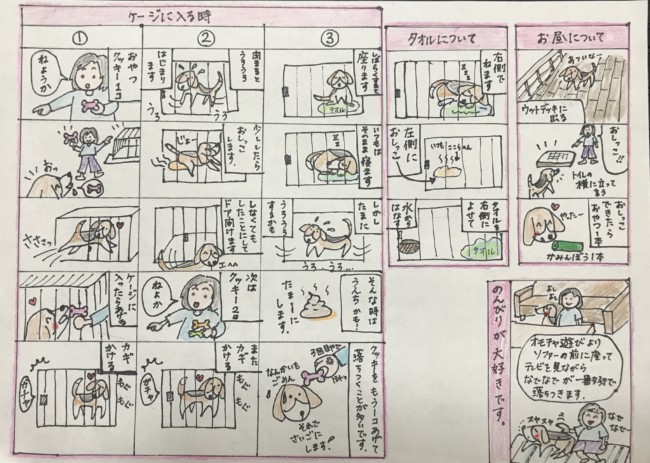 ケージに入る時
①
おやつ
クッキー1コ
ねようか
おっ
ささっ
ケージに
入ったらあげる
カギ
かける
ガチャ
もじ
もじ
②
閉まると
うろうろ
はじまり
ます
うろ
うろ
少ししたら
おしっこ
します。
じょー
しなくても
したことにして
ドア開けます
次は
クッキー2コ
ねよか
また
カギ
かける
ガチャ
もじ
もじ
③
しばらくすると
座ります
タオル
いつもは
そのまま寝ます
しかし
たまに
うろうろ
するかも
うろ…
うろ…
そんな時は
うんちかも…
たまーーに
します。
クッキーをもう一コあげて
落ちつくことが多いです。
3回目だー
なんかいも
ごめん
それで
さいごに
します!
タオルについて
右側で
ねます
左側に
おしっこ
いつもここらへん
タオルを
右側に
よせて
水から
はなす
タオル
お昼について
あついなー
ウットデッキに
出る
おしっこ!!
トイレの
横に立って
言う
おしっこ
できたら
おやつ1本
やったー
かみんぼう1本
のんびりが大好きです。
よし
よし
オモチャ遊びより
ソファーの前に座って
テレビを見ながら
なでなでが一番すきで
落ちつきます。
スヤスヤ
なで
なで